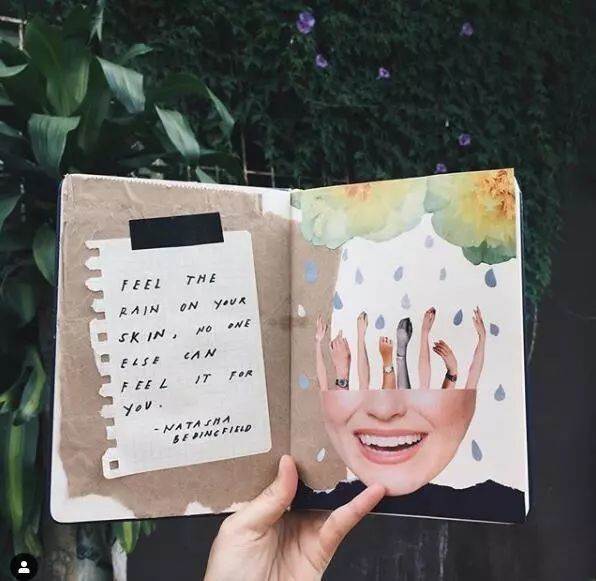 FEEL THE
RAIN ON YOUR
SKIN, NO ONE
ELSE CAN
FEEL IT FOR
YOU.
-NATASHA
BEDINGFIELD